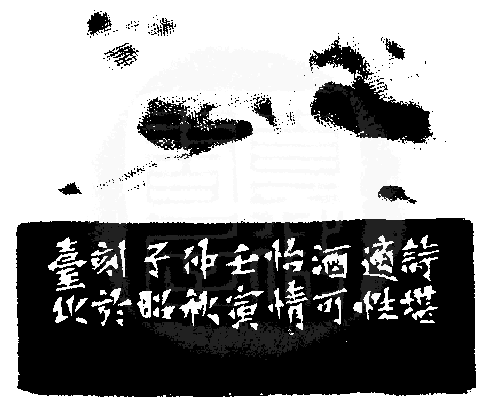 詩堪
適性
酒可
怡情
壬寅
仲秋
子昭
刻於
臺北